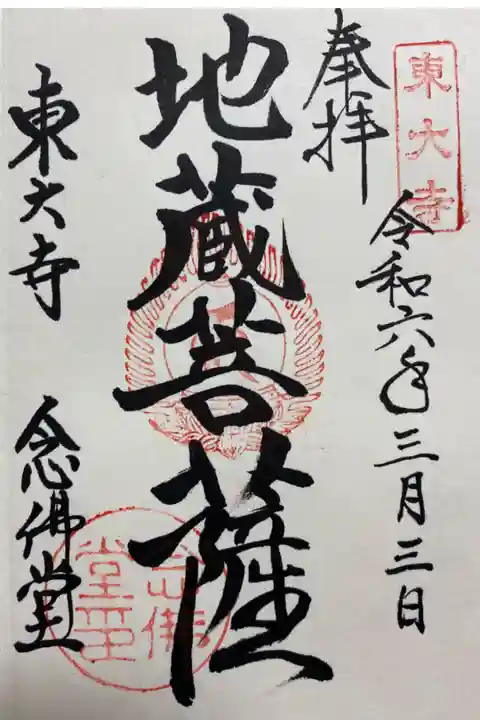 東大寺
奉拝
令和六年三月三日
地蔵菩薩
東大寺 念佛堂
念佛堂印